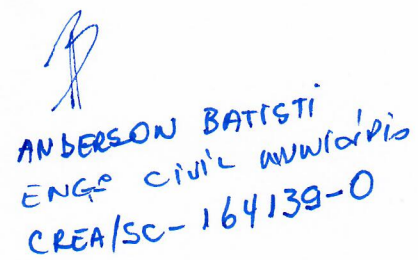 ANDERSON BATISTI
ENGº CIVIL MUNICÍPIO
CREA/SC-164139-0